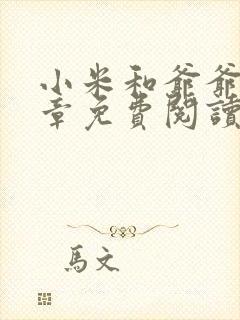 小米和爺爺
章免費閱讀
馬文